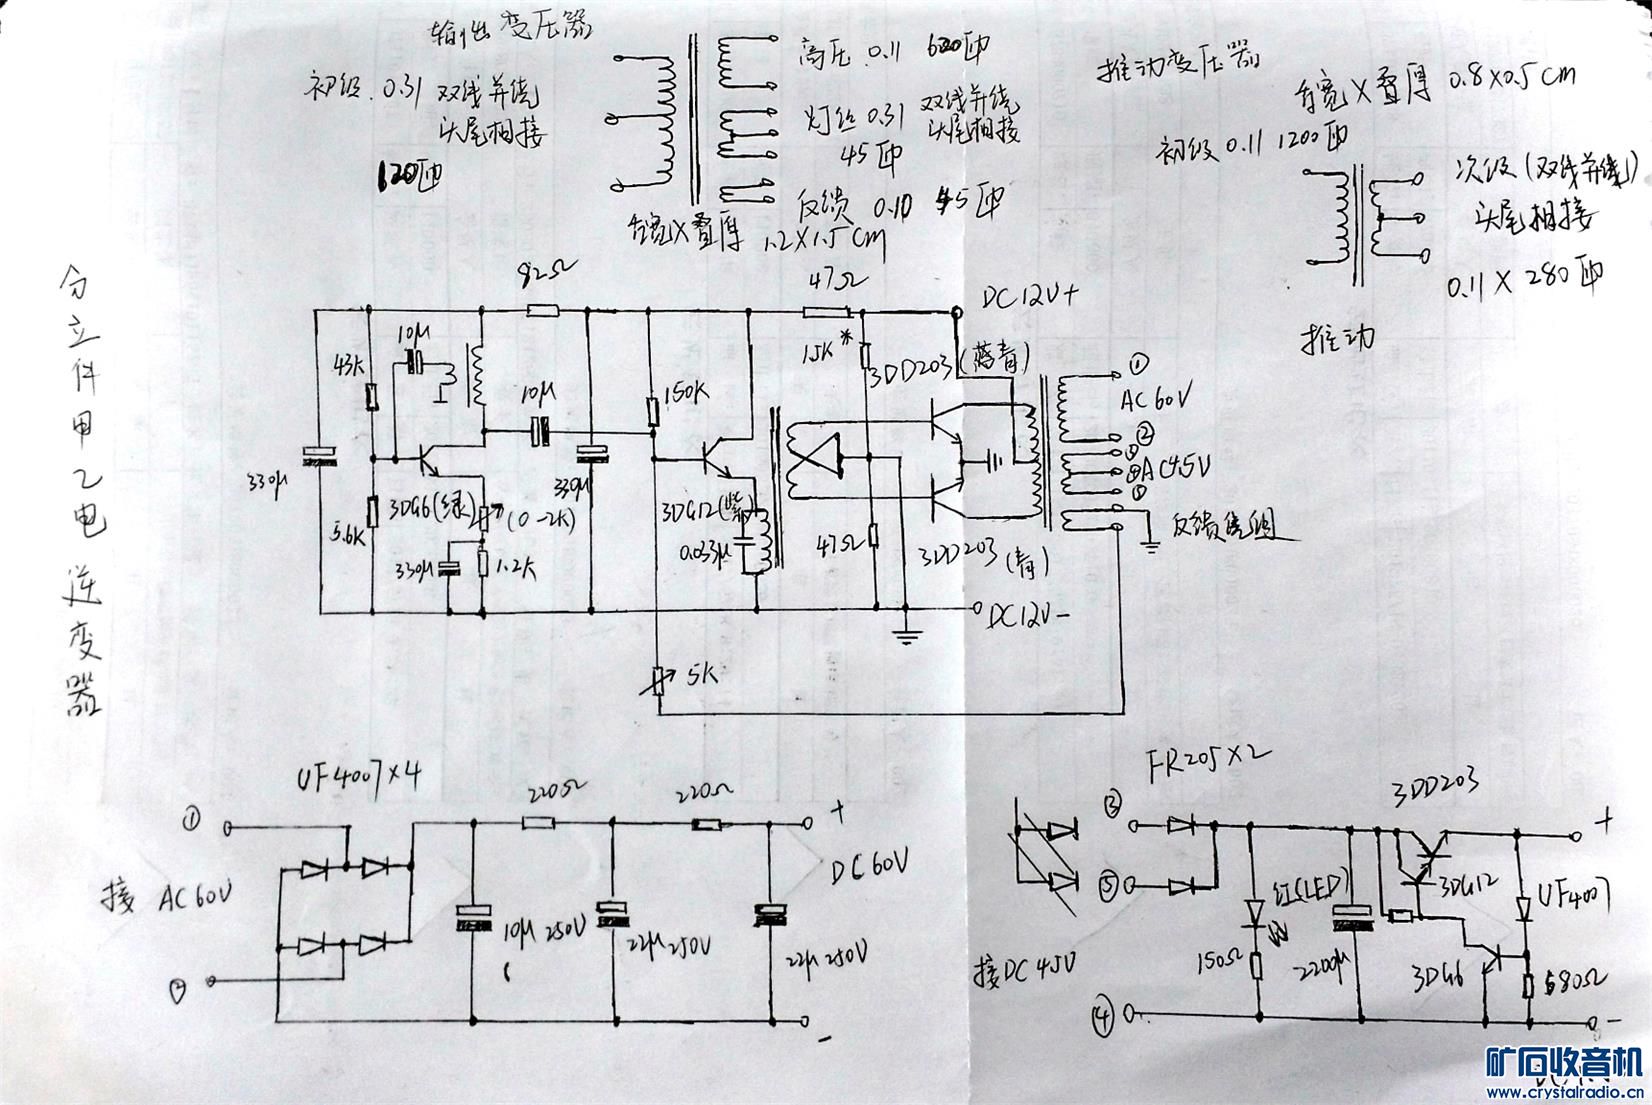 输出变压器
初级 0.31 双线并绕
头尾相接
120匝
高压 0.11 620匝
灯丝 0.31 双线并绕
头尾相接
45匝
反馈 0.10 45匝
舌宽X叠厚 1.2X1.5cm
推动变压器
舌宽X叠厚 0.8X0.5cm
初级 0.11 1200匝
次级(双线并绕)
头尾相接
0.11X280匝
推动
分立件甲乙电逆变器
82Ω
47Ω
DC12V+
10μ
43K
10μ
150K
1.5K*
3DD203
(蓝青)
①
AC60V
②
③
④AC4.5V
⑤
330μ
330μ
3DG6(绿)
(0-2K)
3DG12(紫)
5.6K
330μ
1.2K
0.033μ
47Ω
3DD203
(青)
反馈绕组
DC12V-
5K
UF4007X4
220Ω
220Ω
①
+
接 AC60V
DC60V
10μ250V
22μ250V
22μ250V
②
-
FR205X2
③
3DD203
+
⑤
红(LED)
3DG12
UF4007
接DC4.5V
150Ω
2200μ
3DG6
680Ω
④
-
矿石收音机
www.crystalradio.cn